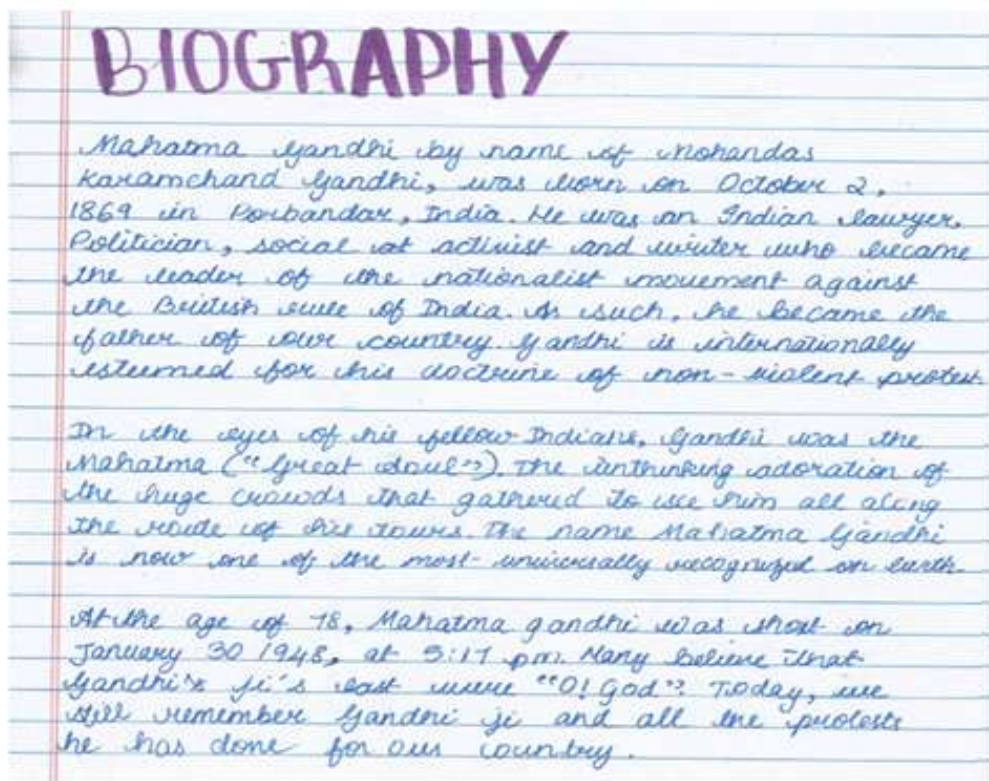 BIOGRAPHY
Mahatma Gandhi by name of Mohandas
Karamchand Gandhi, was born on October 2,
1869 in Porbandar, India. He was an Indian lawyer,
Politician, social at activist and writer who became
the leader of the nationalist movement against
the British rule of India. As such, he became the
father of our country. Gandhi is internationally
esteemed for his doctrine of non-violent protest.
In the eyes of his fellow Indians, Gandhi was the
Mahatma ("Great Soul"). The unthinking adoration of
the huge crowds that gathered to see him all along
the route of his tours. The name Mahatma Gandhi
is now one of the most universally recognized on earth.
At the age of 78, Mahatma gandhi was shot on
January 30 1948, at 5:17 pm. Many believe that
Gandhi's ji's last were "O! God". Today, we
still remember Gandhi ji and all the protests
he has done for our country.